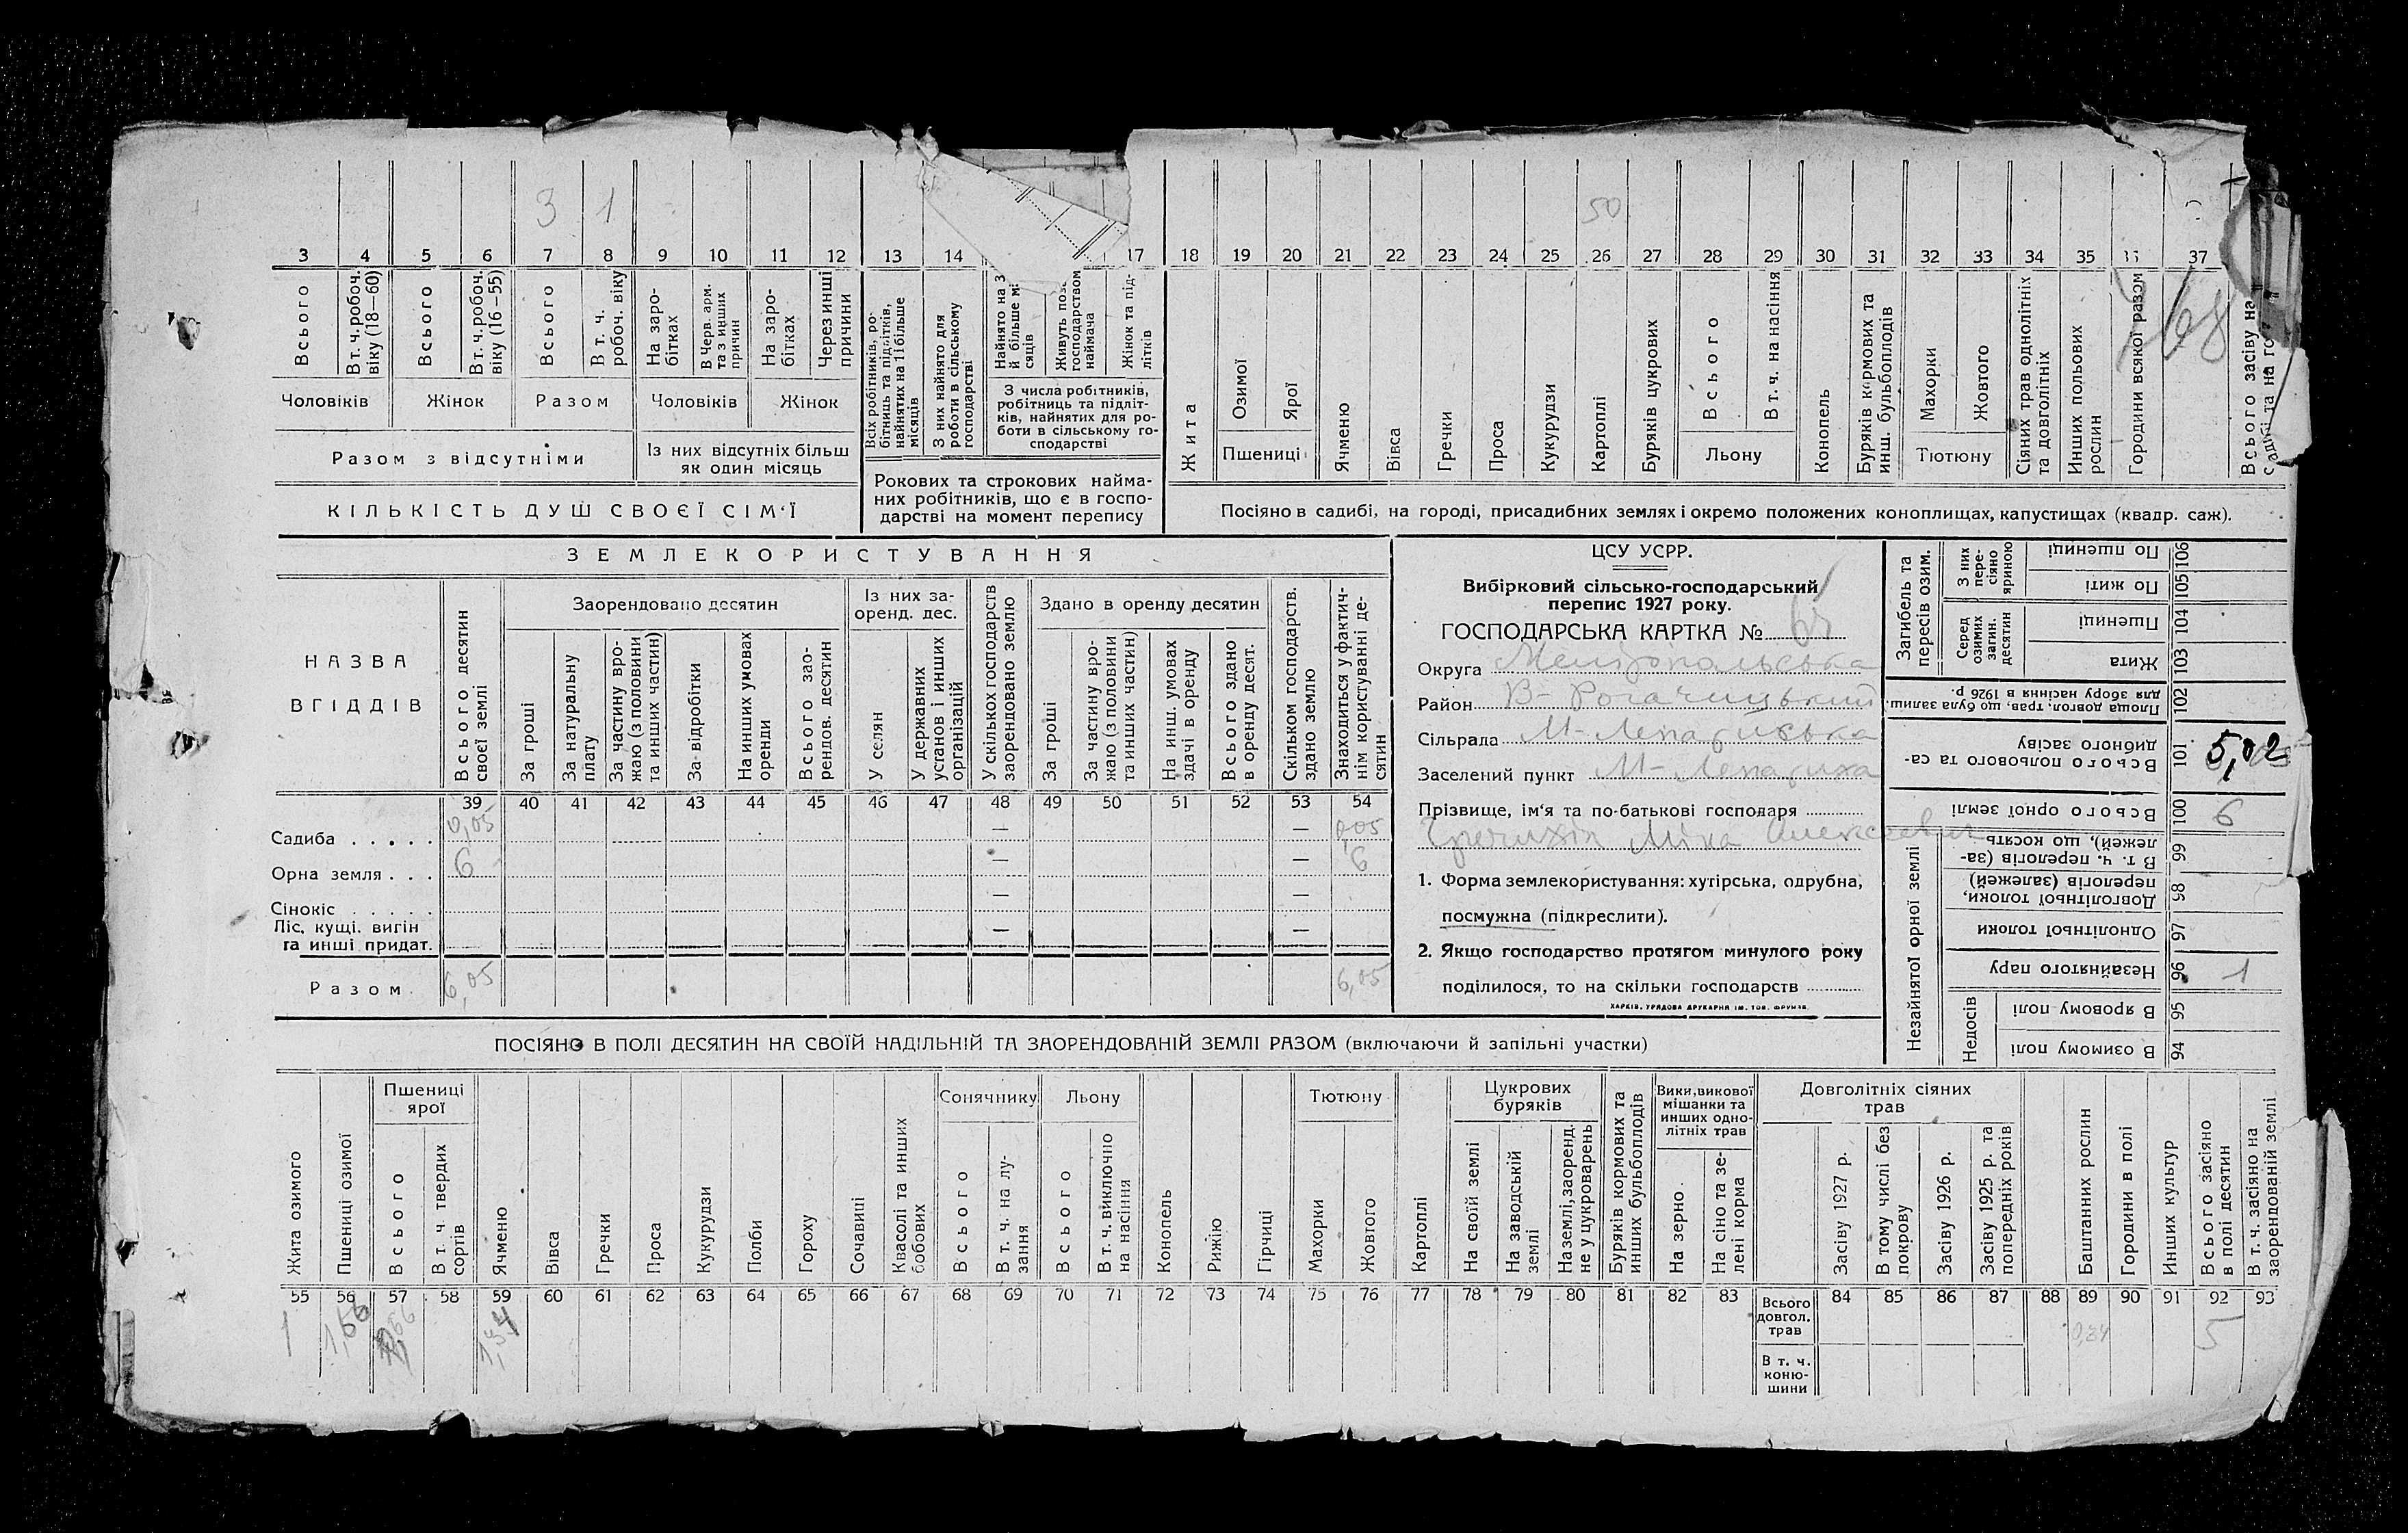 3 1 50
3 4 5 6 7 8 9 10 11 12 13 14 17 18 19 20 21 22 23 24 25 26 27 28 29 30 31 32 33 34 35 37
Всього
В т. ч. робоч. віку (18—60)
Всього
В т. ч. робоч. віку (16—55)
Всього
В т. ч. робоч. віку
На заробітках
В Черв. арм. та з инших причин
На заробітках
Через инші причини
Чоловіків
Жінок
Разом
Чоловіків
Жінок
Разом з відсутніми
Із них відсутніх більш як один місяць
КІЛЬКІСТЬ ДУШ СВОЄЇ СІМ'Ї
Всіх робітників, робітниць та підлітків, найнятих на 1 і більше місяців
З них найнято для роботи в сільському господарстві
Найнято на 3 й більше мі-
сяців
Живуть поза господарством наймача
Жінок та підлітків
З числа робітників, робітниць та підлітків, найнятих для роботи в сільському господарстві
Рокових та строкових найманих робітників, що є в господарстві на момент перепису
Жита
Озимої
Ярої
Пшениці
Ячменю
Вівса
Гречки
Проса
Кукурудзи
Картоплі
Буряків цукрових
Всього
В т. ч. на насіння
Льону
Конопель
Буряків кормових та инш. бульбоплодів
Махорки
Жовтого
Тютюну
Сіяних трав однолітніх та довголітніх
Инших польових рослин
Городини всякої разом
68
Всього засіву на
Посіяно в садибі, на городі, присадибних землях і окремо положених коноплищах, капустищах (квадр. саж).
ЗЕМЛЕКОРИСТУВАННЯ
НАЗВА ВГІДДІВ
Всього десятин своєї землі
Заорендовано десятин
За гроші
За натуральну плату
За частину врожаю (з половини та инших частин)
За відробітки
На инших умовах оренди
Всього заорендов. десятин
Із них заоренд. дес.
У селян
У державних установ і инших організацій
У скількох господарств заорендовано землю
Здано в оренду десятин
За гроші
За частину врожаю (з половини та инших частин)
На инш. умовах здачі в оренду
Всього здано в оренду десят.
Скільком господарств. здано землю
Знаходиться у фактичнім користуванні десятин
39 40 41 42 43 44 45 46 47 48 49 50 51 52 53 54
Садиба . . . . . 0,05 — — 0,05
Орна земля . . . 6 — — 6
Сінокіс . . . . . — —
Ліс, кущі, вигін
та инші придат. — —
Разом 6,05 6,05
ЦСУ УСРР.
Вибірковий сільсько-господарський
перепис 1927 року.
ГОСПОДАРСЬКА КАРТКА № 65
Округа Мелітопольська
Район В-Рогачицький
Сільрада М-Лепатиська
Заселений пункт М-Лепатиха
Прізвище, ім'я та по-батькові господаря
Алексеевич
1. Форма землекористування: хутірська, одрубна,
посмужна (підкреслити).
2. Якщо господарство протягом минулого року
поділилося, то на скільки господарств
ХАРКІВ. УРЯДОВА ДРУКАРНЯ ІМ. ТОВ. ФРУНЗЕ.
Загибель та пересів озим.
З них пересіяно яриною
По пшениці 106
По житі 105
Серед озимих загин. десятин
Пшениці 104
Жита 103
Площа довгол. трав, що була залиш. для збору насіння в 1926 р. 102
Всього польового та садибного засіву 101 5,02
Всього орної землі 100 6
Незайнятої орної землі
В т. ч. перелогів (залежей), що косять 99
Довголітньої толоки, перелогів (залежей) 98
Однолітньої толоки 97
Незайнятого пару 96 1
Недосів
В яровому полі 95
В озимому полі 94
ПОСІЯНО В ПОЛІ ДЕСЯТИН НА СВОЇЙ НАДІЛЬНІЙ ТА ЗАОРЕНДОВАНІЙ ЗЕМЛІ РАЗОМ (включаючи й запільні участки)
Жита озимого
Пшениці озимої
Пшениці ярої
Всього
В т. ч. твердих сортів
Ячменю
Вівса
Гречки
Проса
Кукурудзи
Полби
Гороху
Сочавиці
Квасолі та инших бобових
Сонячнику
Всього
В т. ч. на лузання
Льону
Всього
В т. ч. виключно на насіння
Конопель
Рижію
Гірчиці
Тютюну
Махорки
Жовтого
Картоплі
Цукрових буряків
На своїй землі
На заводській землі
На землі, заоренд. не у цукроварень
Буряків кормових та инших бульбоплодів
Вики, викової мішанки та инших однолітніх трав
На зерно
На сіно та зелені корма
Довголітніх сіяних трав
Засіву 1927 р.
В тому числі без покрову
Засіву 1926 р.
Засіву 1925 р. та попередніх років
Баштанних рослин
Городини в полі
Инших культур
Всього засіяно в полі десятин
В т. ч. засіяно на заорендованій землі
55 56 57 58 59 60 61 62 63 64 65 66 67 68 69 70 71 72 73 74 75 76 77 78 79 80 81 82 83 84 85 86 87 88 89 90 91 92 93
Всього довгол. трав
В т. ч. конюшини
1 1,66 1,34 0,34 5